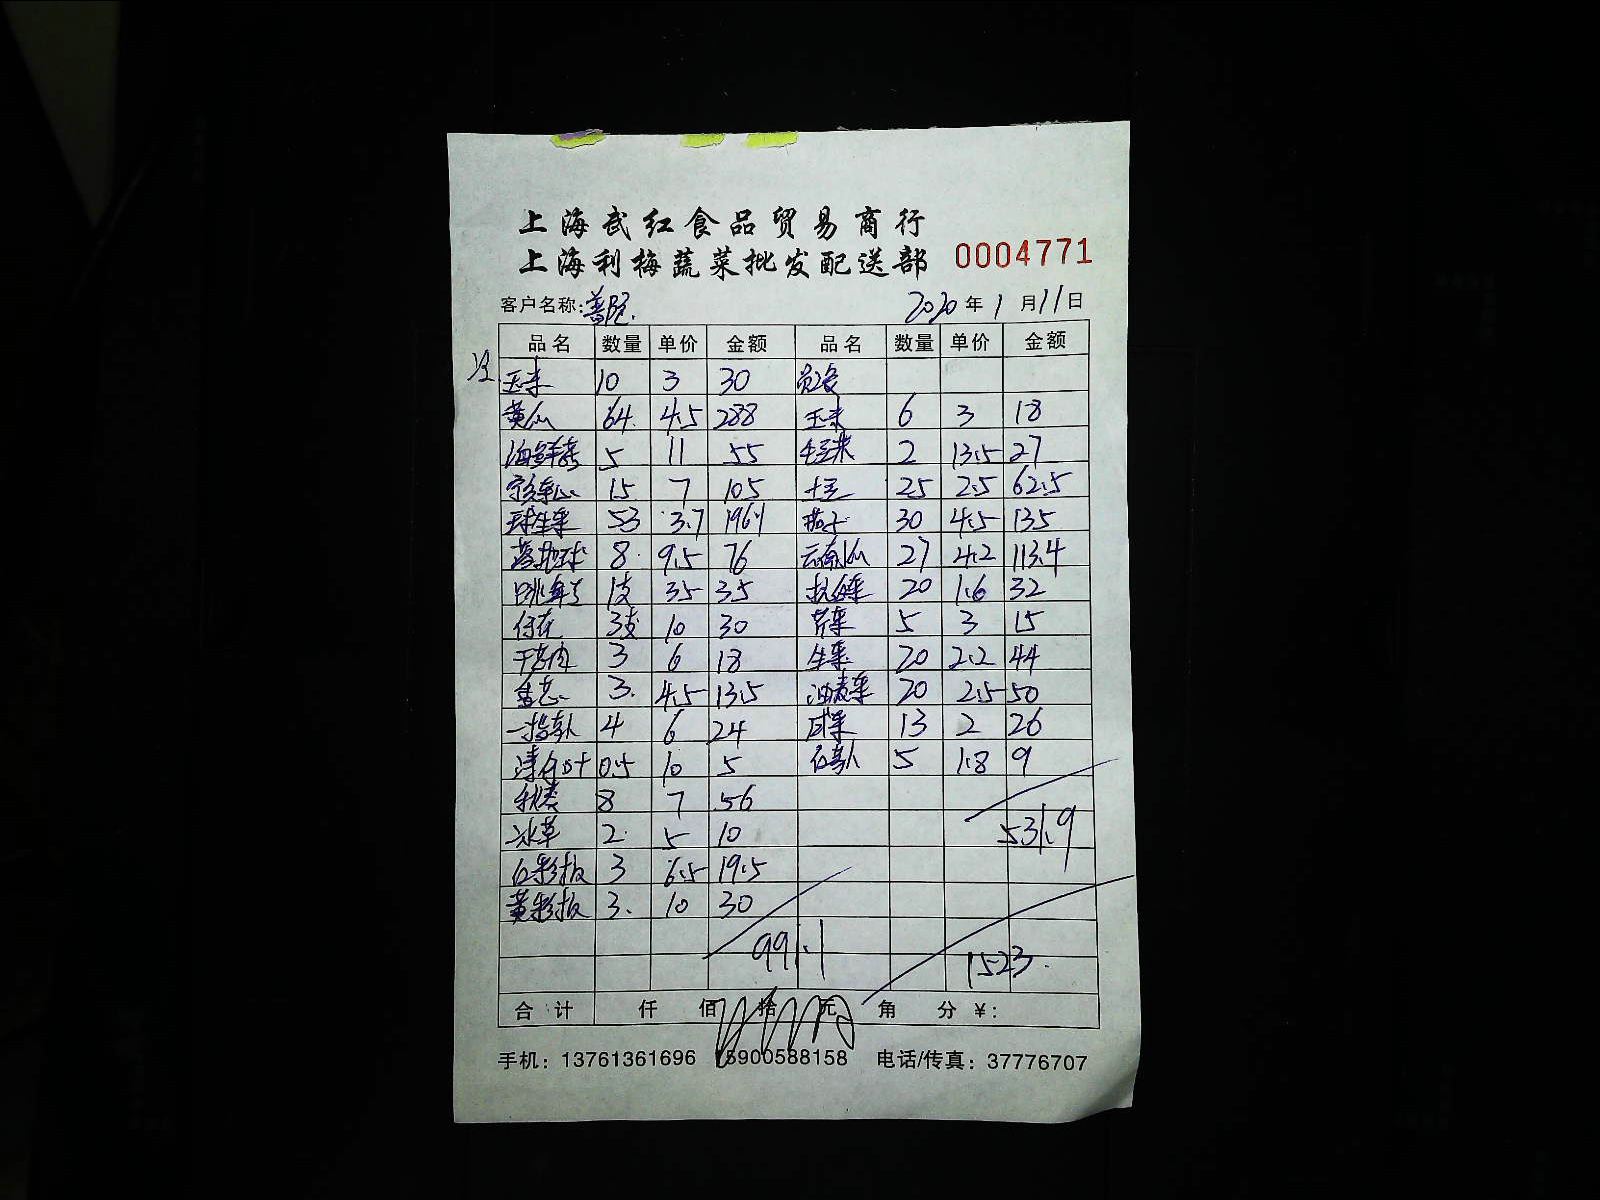 上海武红食品贸易商行
上海利梅蔬菜批发配送部 0004771
客户名称: 2020年1月11日
品名 数量 单价 金额 品名 数量 单价 金额
玉米 10 3 30
黄瓜 64 4.5 288 玉米 6 3 18
海鲜菇 5 11 55 毛豆米 2 13.5 27
15 7 105 土豆 25 2.5 62.5
球生菜 53 3.7 196.1 茄子 30 4.5 135
8 9.5 76 云南瓜 27 4.2 113.4
1支 35 35 20 1.6 32
3支 10 30 芹菜 5 3 15
3 6 18 生菜 20 2.2 44
3 4.5 13.5 油麦菜 20 2.5 50
4 6 24 13 2 26
0.5 10 5 5 1.8 9
秋葵 8 7 56
冰草 2 5 10 531.9
红彩椒 3 6.5 19.5
黄彩椒 3 10 30
991.1 1523
合计 仟 佰 拾 元 角 分 ¥:
手机: 13761361696 15900588158 电话/传真: 37776707